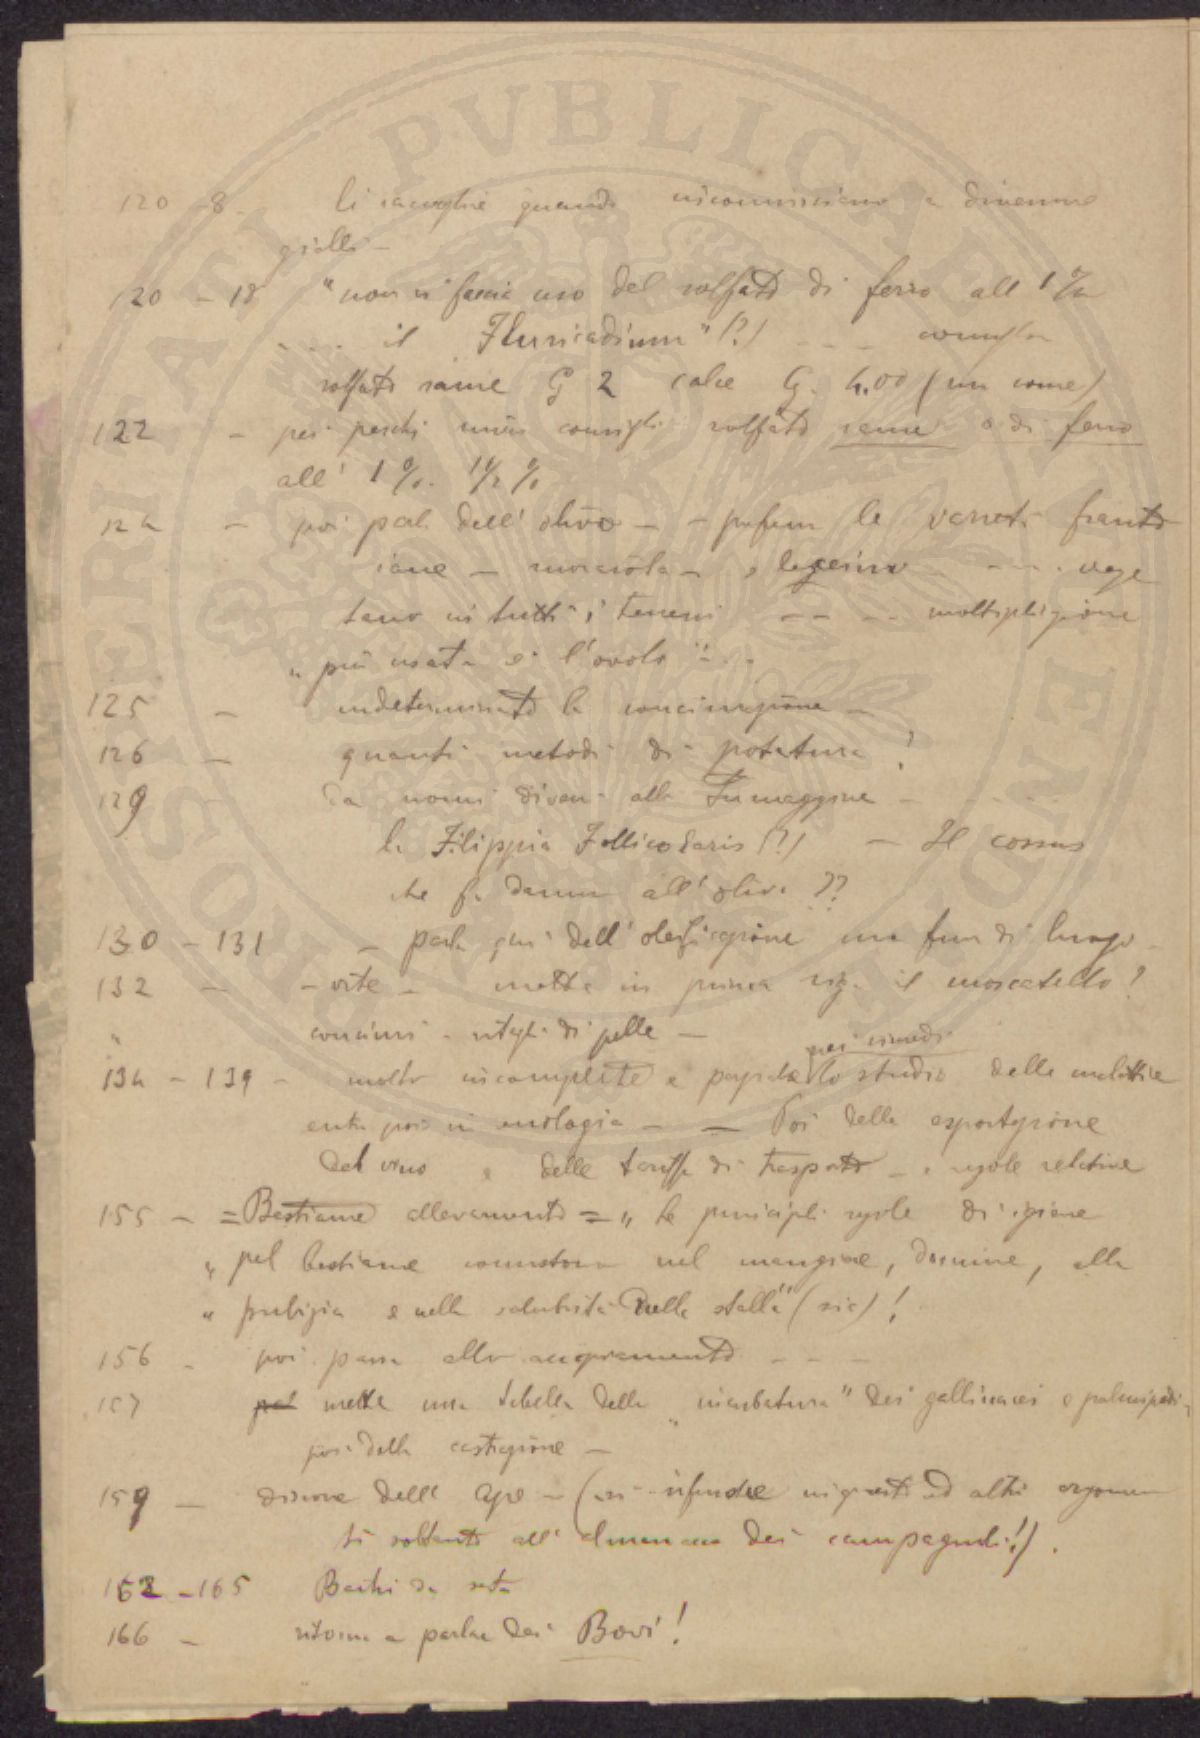 120 - 8 - li raccoglie quando incominciano a divenire
gialli -
120 - 18 "non si faccia uso del solfato di ferro all' 1 %
.... il Fluricadinum" (?) - - - consiglia
solfato rame G 2 calce G. 4.00 (un come)
122 - pei peschi invece consiglia solfato rame o di ferro
all' 1 %. 1 1/2 %
124 - poi parla dell'olivo - - le varietà frantο
iane - moraiola - e leccino - - - - vege
tano in tutti i terreni - - - - moltiplicazione
" più usata è l'ovolo " - . .
125 - indeterminato la concimazione -
126 - quanti metodi di potatura !
129 Da nomi diversi alla Fumaggine - - - -
la Filippia Follicolaris (?) - Il cossus
che fa danni all'olivo ??
130 - 131 - parla qui dell'oleificazione ma fuori di luogo -
132 - - vite - mette in prima riga il moscatello ?
" concimi - ritagli di pelle -
pei rimedi
134 - 139 - molto incomplete e lo studio delle malattie
entra poi in enologia - - Poi della esportazione
del vino e delle tariffe di trasporto - e regole relative
155 - = Bestiame allevamento = " Le principali regole di igiene
" pel bestiame consistono nel mangiare, dormire, alla
" pulizia e nella salubrità della stalla" (sic) !
156 - poi passa allo - - -
157 mette una tabella della "incubatura" dei gallinacei e palmipedi -
poi della castrazione -
159 - discorre delle Ape - (in questi ed altri argomen
ti soltanto all' almanacco dei campagnuoli !) .
162 - 165 Bachi da seta
166 - ritorna a parlare dei Bovi !
PVBLICAE
PROSPERITATI